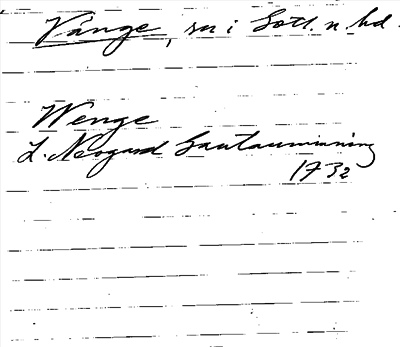 Vänge, sn i Gotl. n. hd.
Wenge
L. Neogard Gautauminning
1732